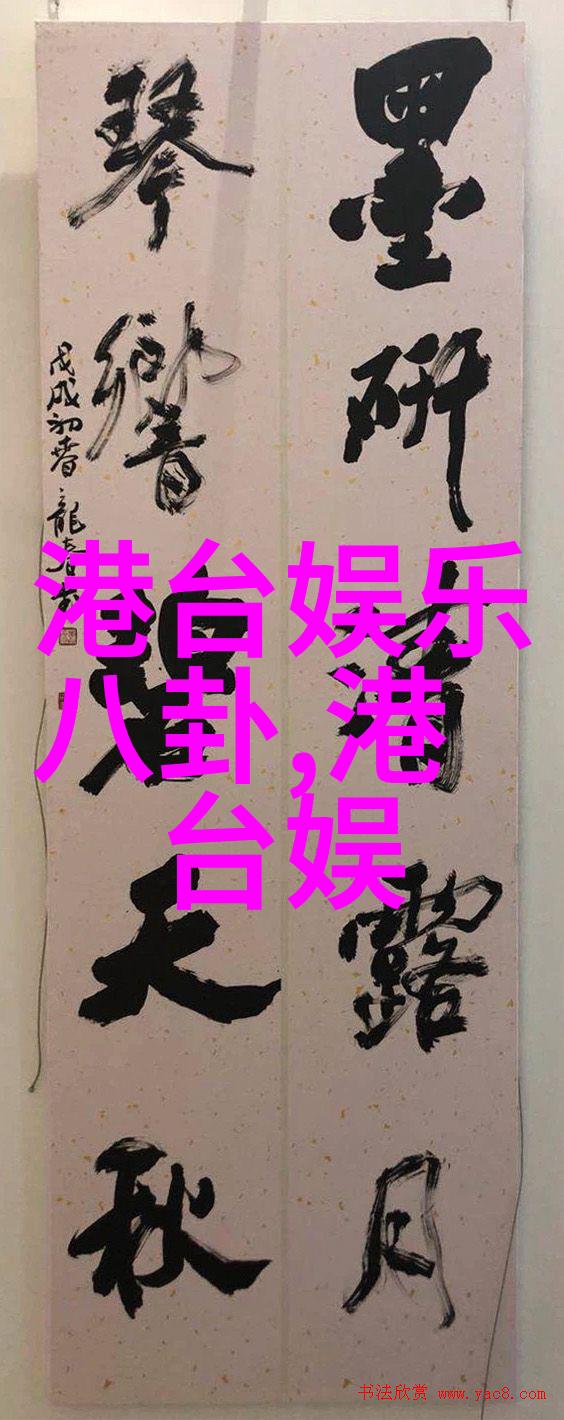 墨研清露月
琴響碧天秋
戊戌初春 龍
港台娱乐
八卦,港
台娱
书法欣赏 www.yac8.com